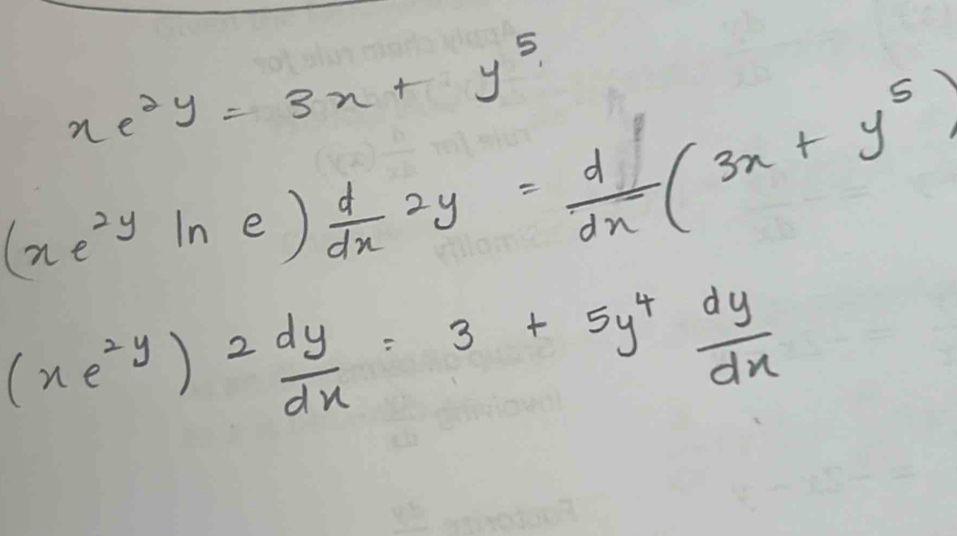 xe^{2y} = 3x + y^5
(xe^{2y} ln e) d/dx 2y = d/dx (3x + y^5)
(xe^{2y}) 2 dy/dx = 3 + 5y^4 dy/dx